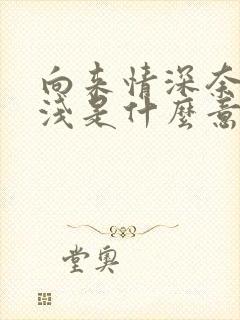 向来情深奈
浅是什麼意
堂奥